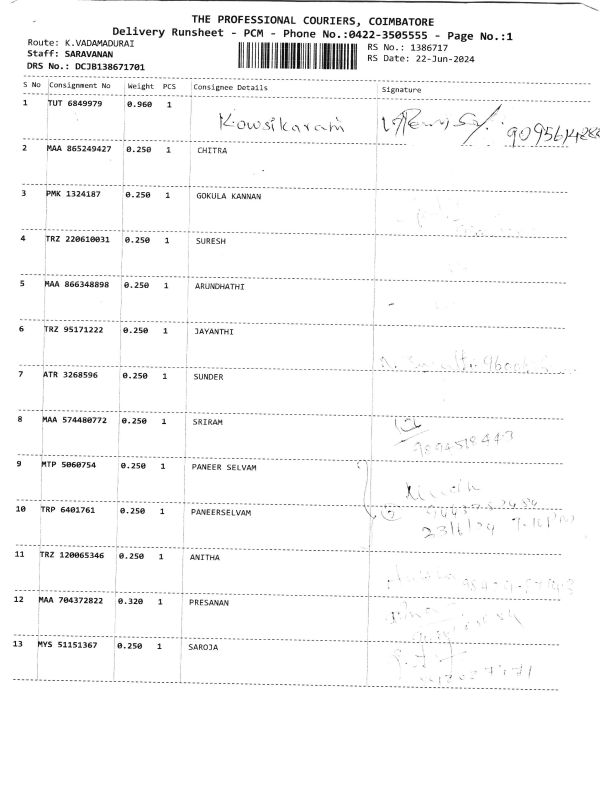 THE PROFESSIONAL COURIERS, COIMBATORE
Delivery Runsheet - PCM - Phone No.:0422-3505555 - Page No.:1
Route: K.VADAMADURAI
Staff: SARAVANAN
DRS No.: DCJB138671701
RS No.: 1386717
RS Date: 22-Jun-2024
S No Consignment No Weight PCS Consignee Details Signature
1 TUT 6849979 0.960 1
Kowsikaram
2 MAA 865249427 0.250 1 CHITRA
3 PMK 1324187 0.250 1 GOKULA KANNAN
4 TRZ 220610031 0.250 1 SURESH
5 MAA 866348898 0.250 1 ARUNDHATHI
6 TRZ 95171222 0.250 1 JAYANTHI
7 ATR 3268596 0.250 1 SUNDER
8 MAA 574480772 0.250 1 SRIRAM
9 MTP 5060754 0.250 1 PANEER SELVAM
10 TRP 6401761 0.250 1 PANEERSELVAM
23/6/24
11 TRZ 120065346 0.250 1 ANITHA
12 MAA 704372822 0.320 1 PRESANAN
13 MYS 51151367 0.250 1 SAROJA